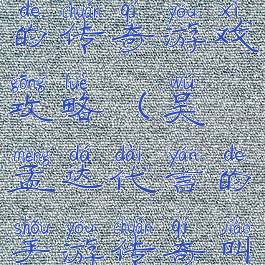 de chuán qí yóu xì
的传奇游戏
gōng lüè wú
攻略（吴
mèng dá dài yán de
孟达代言的
shǒu yóu chuán qí jiào
手游传奇叫